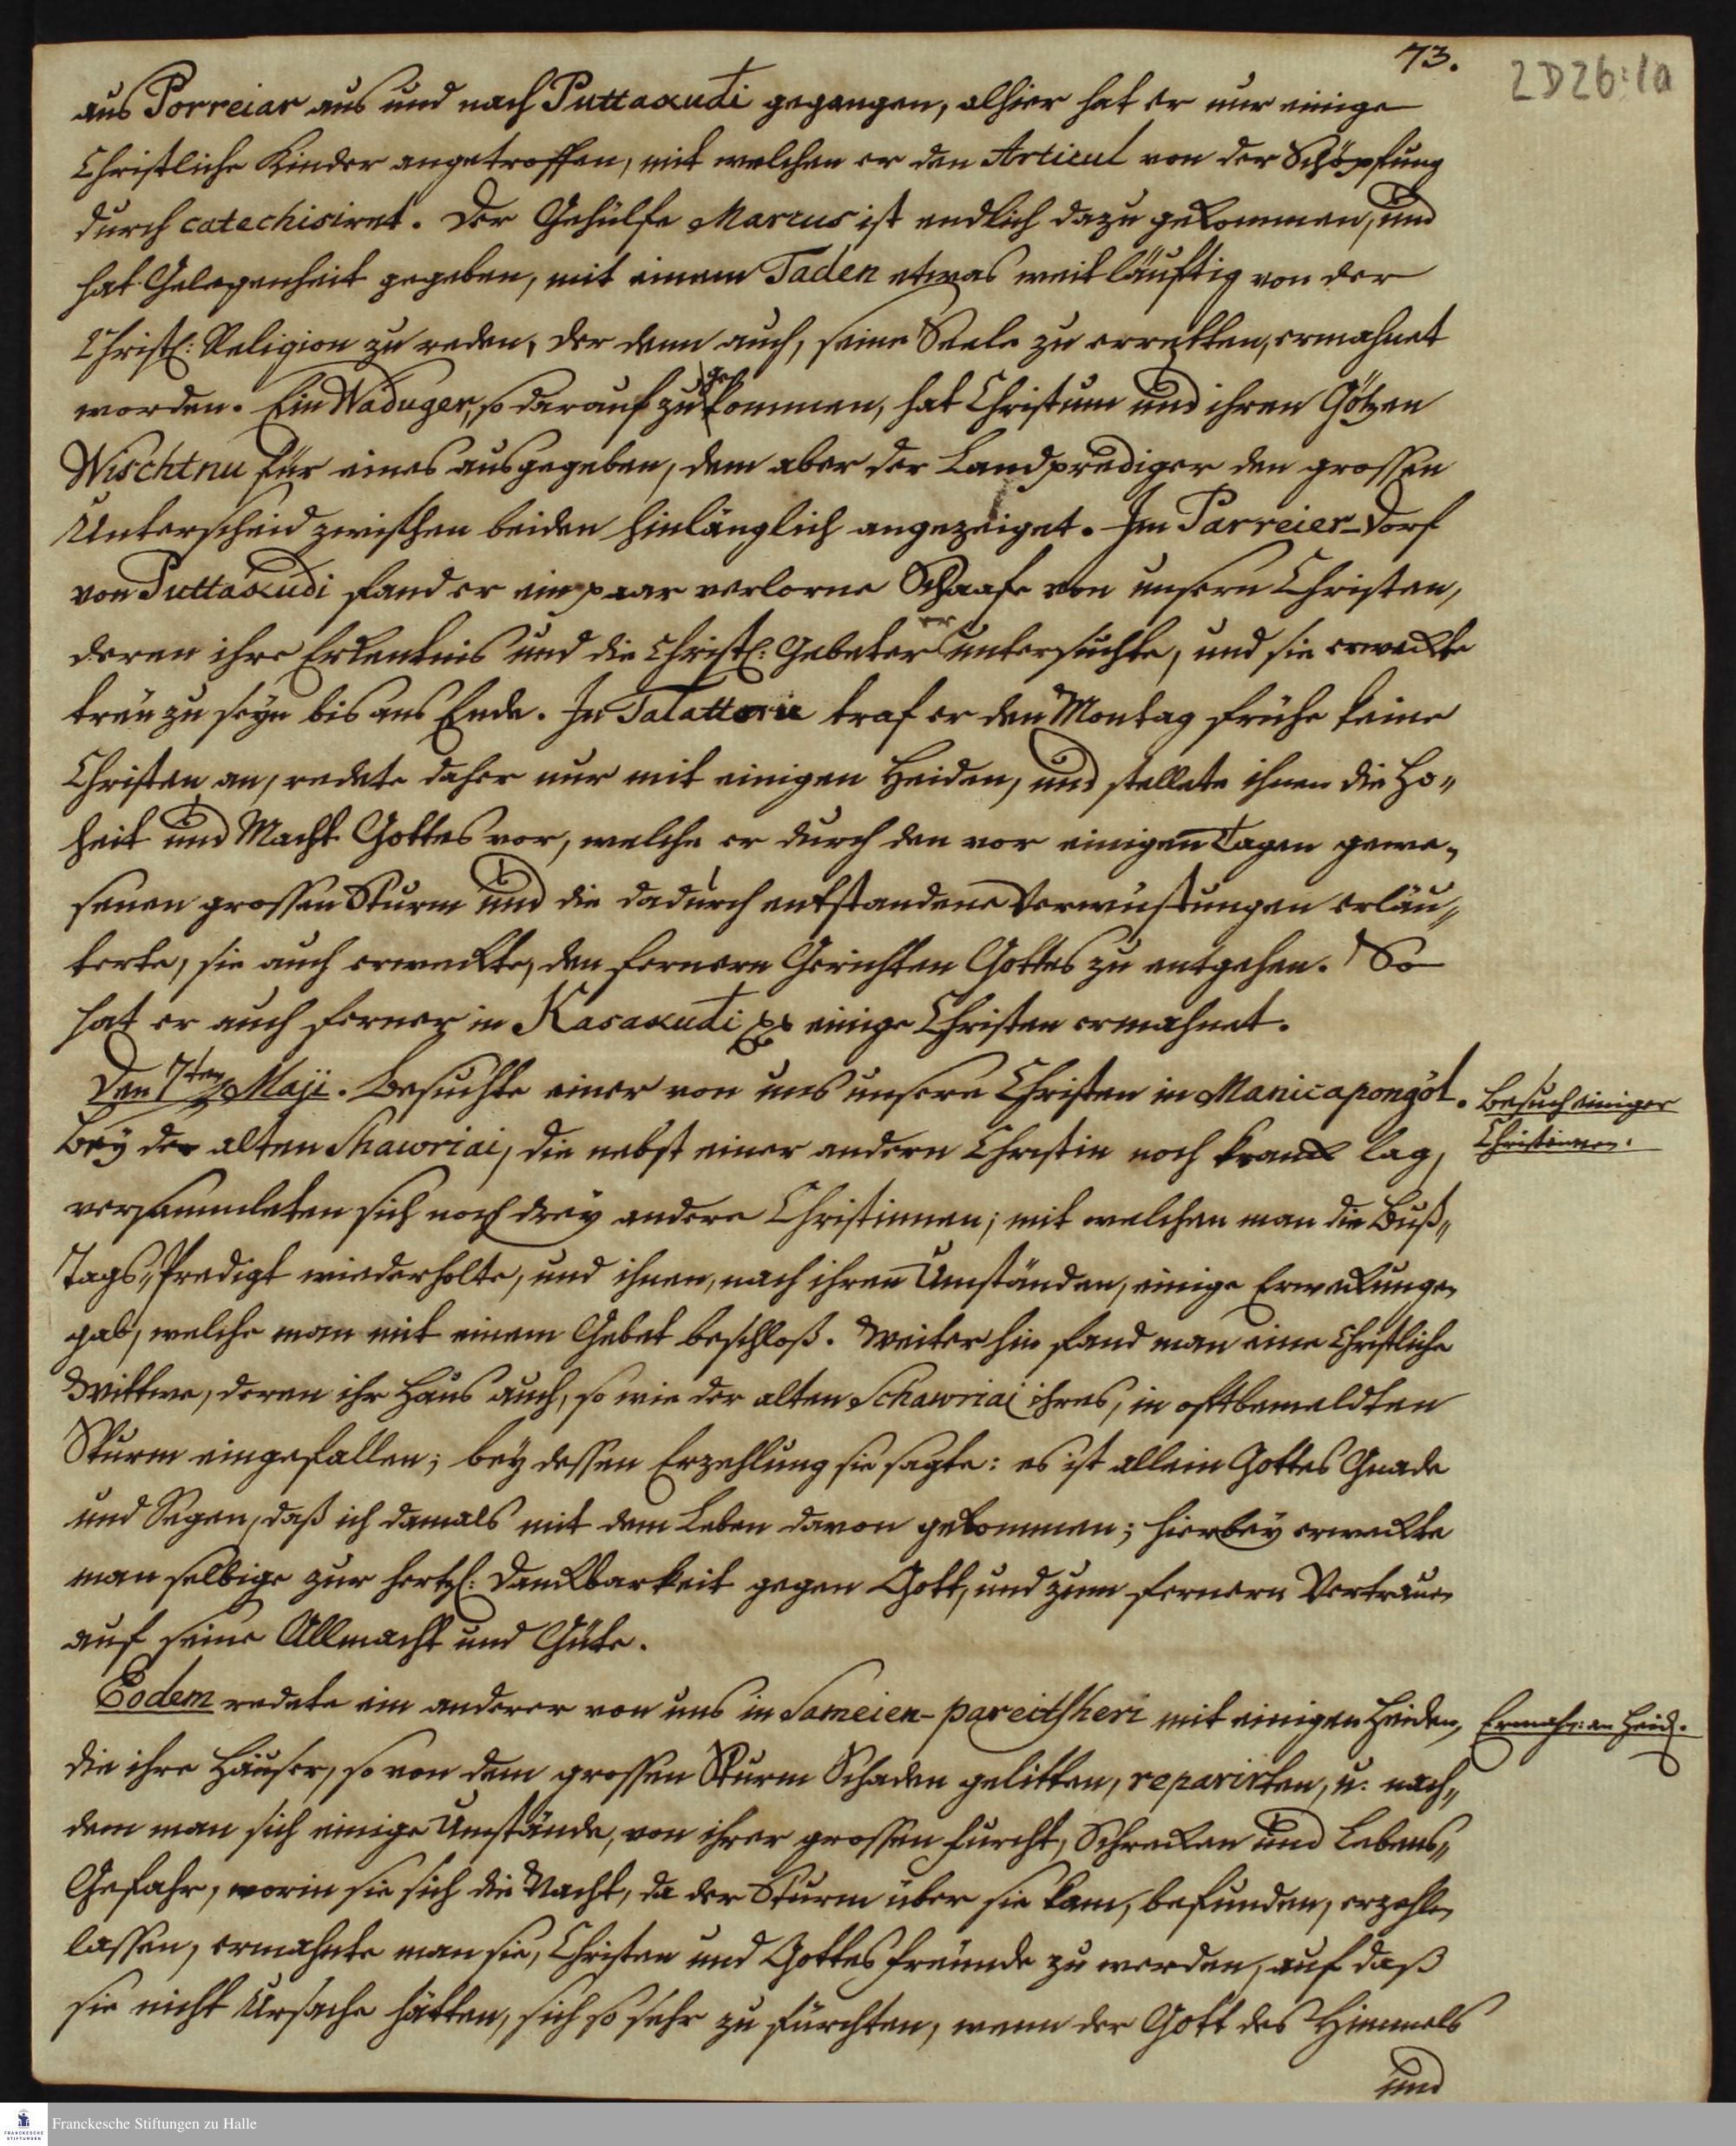 73.
2D26:10
aus Porreiar aus und nach Puttaxudi gegangen, alhier hat er nur einige
Christliche Kinder angetroffen, mit welchen er den Articul von der Schöpfung
durch catechisiret. Der Gehülfe Marcus ist endlich dazu gekommen, und
hat Gelegenheit gegeben, mit einem Taden etwas weitläuftig von der
Christl: Religion zu reden, der denn auch, seine Seele zu erretten, ermahnet
worden. Ein Waduger, so darauf zu gekommen, hat Christum und ihren Götzen
Wischtnu für eines ausgegeben, dem aber der Landprediger den grossen
Unterscheid zwischen beiden hinlänglich angezeiget. Im Parreier-Dorf
von Puttaxudi fand er ein paar verlorne Schaafe von unsern Christen,
deren ihre Erkentnis und die Christl: Gebeter er untersuchte, und sie erweckte
treu zu seyn bis ans Ende. In Talatteru traf er den Montag frühe keine
Christen an, redete daher nur mit einigen Heiden, und stellete ihnen die Ho„
heit und Macht Gottes vor, welche er durch den vor einigen Tagen gewe„
senen grossen Sturm und die dadurch entstandene Verwüstungen erläu„
terte, sie auch erweckte, den fernern Gerichten Gottes zu entgehen. So
hat er auch ferner in Kasaxudi einige Christen ermahnet.
Den 7ten Maji. Besuchte einer von uns unsere Christen in Manicapongöl.
Besuch einiger
Christinnen.
Bey der alten Shawriai, die nebst einer andern Christin noch kranck lag,
versammleten sich noch drey andere Christinnen; mit welchen man die Buß„
Tags„Predigt wiederholte, und ihnen, nach ihren Umständen, einige Erweckungen
gab, welche man mit einem Gebet beschloß. Weiter hin fand man eine Christliche
Wittwe, deren ihr Haus auch, so wie der alten Schawriai ihres, in oftbemeldten
Sturm eingefallen; bey dessen Erzehlung sie sagte: es ist allein Gottes Gnade
und Segen, daß ich damals mit dem Leben davon gekommen; hierbey erweckte
man selbige zur hertzl: Danckbarkeit gegen Gott, und zum fernern Vertrauen
auf seine Allmacht und Güte.
Eodem redete ein anderer von uns in Sameien-pareitsheri mit einigen Heiden,
Ermahn: an Heid.
die ihre Häuser, so von dem grossen Sturm Schaden gelitten, reparirten, u: nach„
dem man sich einige Umstände, von ihrer grossen Furcht, Schrecken und Lebens„
Gefahr, worin sie sich die Nacht, da der Sturm über sie kam, befunden, erzehlen
lassen, ermahnte man sie, Christen und Gottes Freunde zu werden, auf daß
sie nicht Ursache hätten, sich so sehr zu fürchten, wenn der Gott des Himmels
und
Franckesche Stiftungen zu Halle